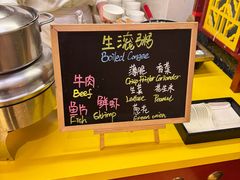 生滚粥
Boiled Congee
牛肉
Beef
鱼片 鲜虾
Fish Shrimp
薄脆 香菜
Crisp Fritter Coriander
生菜 花生米
Lettuce Peanut
葱花
Green onion